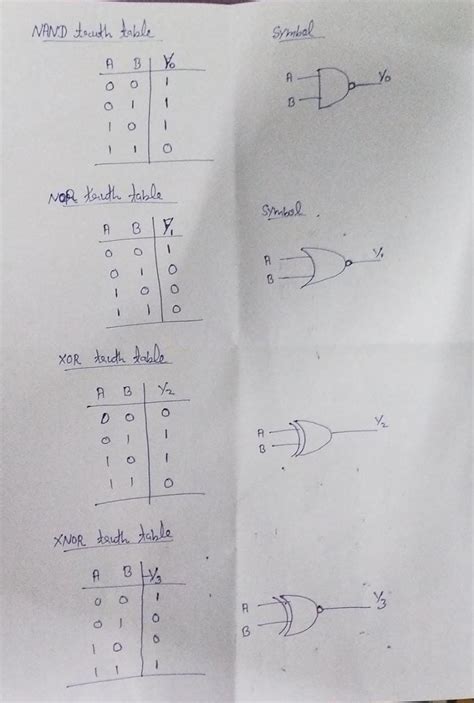 NAND truth table
Symbol
A B Y0
0 0 1
0 1 1
1 0 1
1 1 0
A
B
Y0
NOR truth table
Symbol
A B Y1
0 0 1
0 1 0
1 0 0
1 1 0
A
B
Y1
XOR truth table
A B Y2
0 0 0
0 1 1
1 0 1
1 1 0
A
B
Y2
XNOR truth table
A B Y3
0 0 1
0 1 0
1 0 0
1 1 1
A
B
Y3